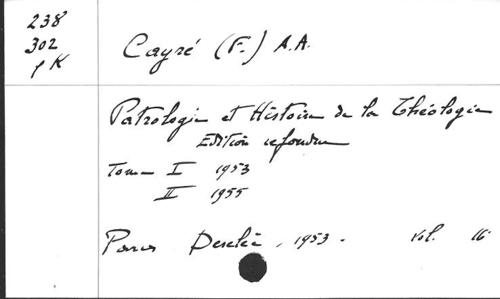 238
302
1 K
Cayré (F.) A.A.
Patrologie et Histoire de la Théologie
Edition refondue
Tome I 1953
II 1955
Paris Desclée, 1953.
vol. 16